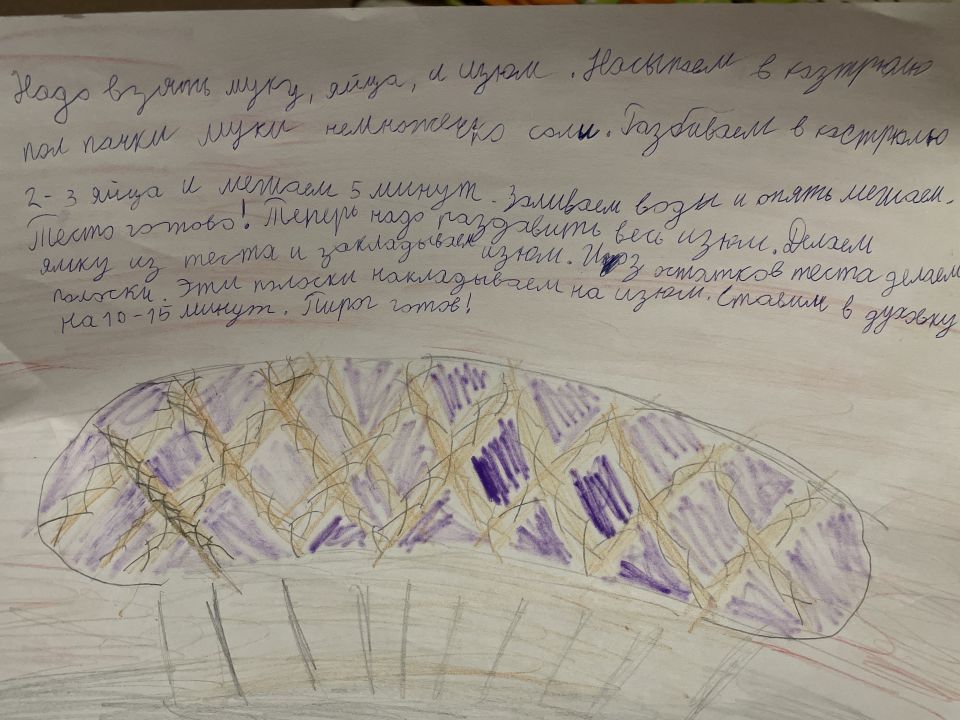 Надо взять муку, яйца, и изюм. Насыпаем в кострюлю
пол пачки муки немножечько соли. Разбиваем в кострюлю
2-3 яйца и мешаем 5 минут. Заливаем воды и опять мешаем.
Тесто готово! Теперь надо раздавить весь изюм. Делаем
ямку из теста и закладываем изюм. Из остатков теста делаем
полоски. Эти полоски накладываем на изюм. Ставим в духовку
на 10-15 минут. Пирог готов!